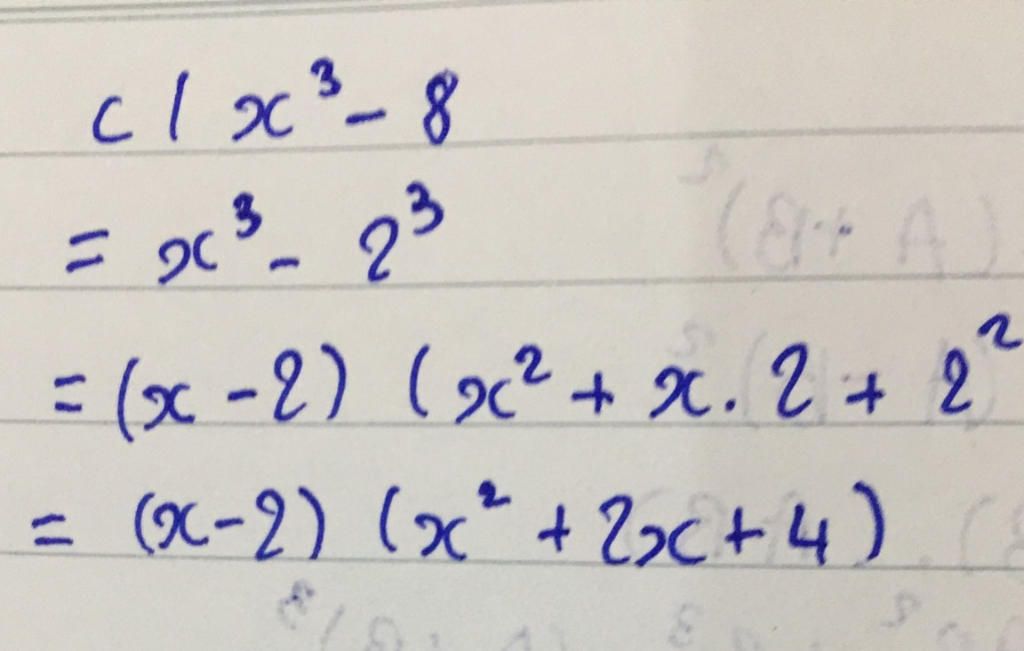 c/ x³ - 8
= x³ - 2³
= (x - 2) (x² + x . 2 + 2²
= (x - 2) (x² + 2x + 4)